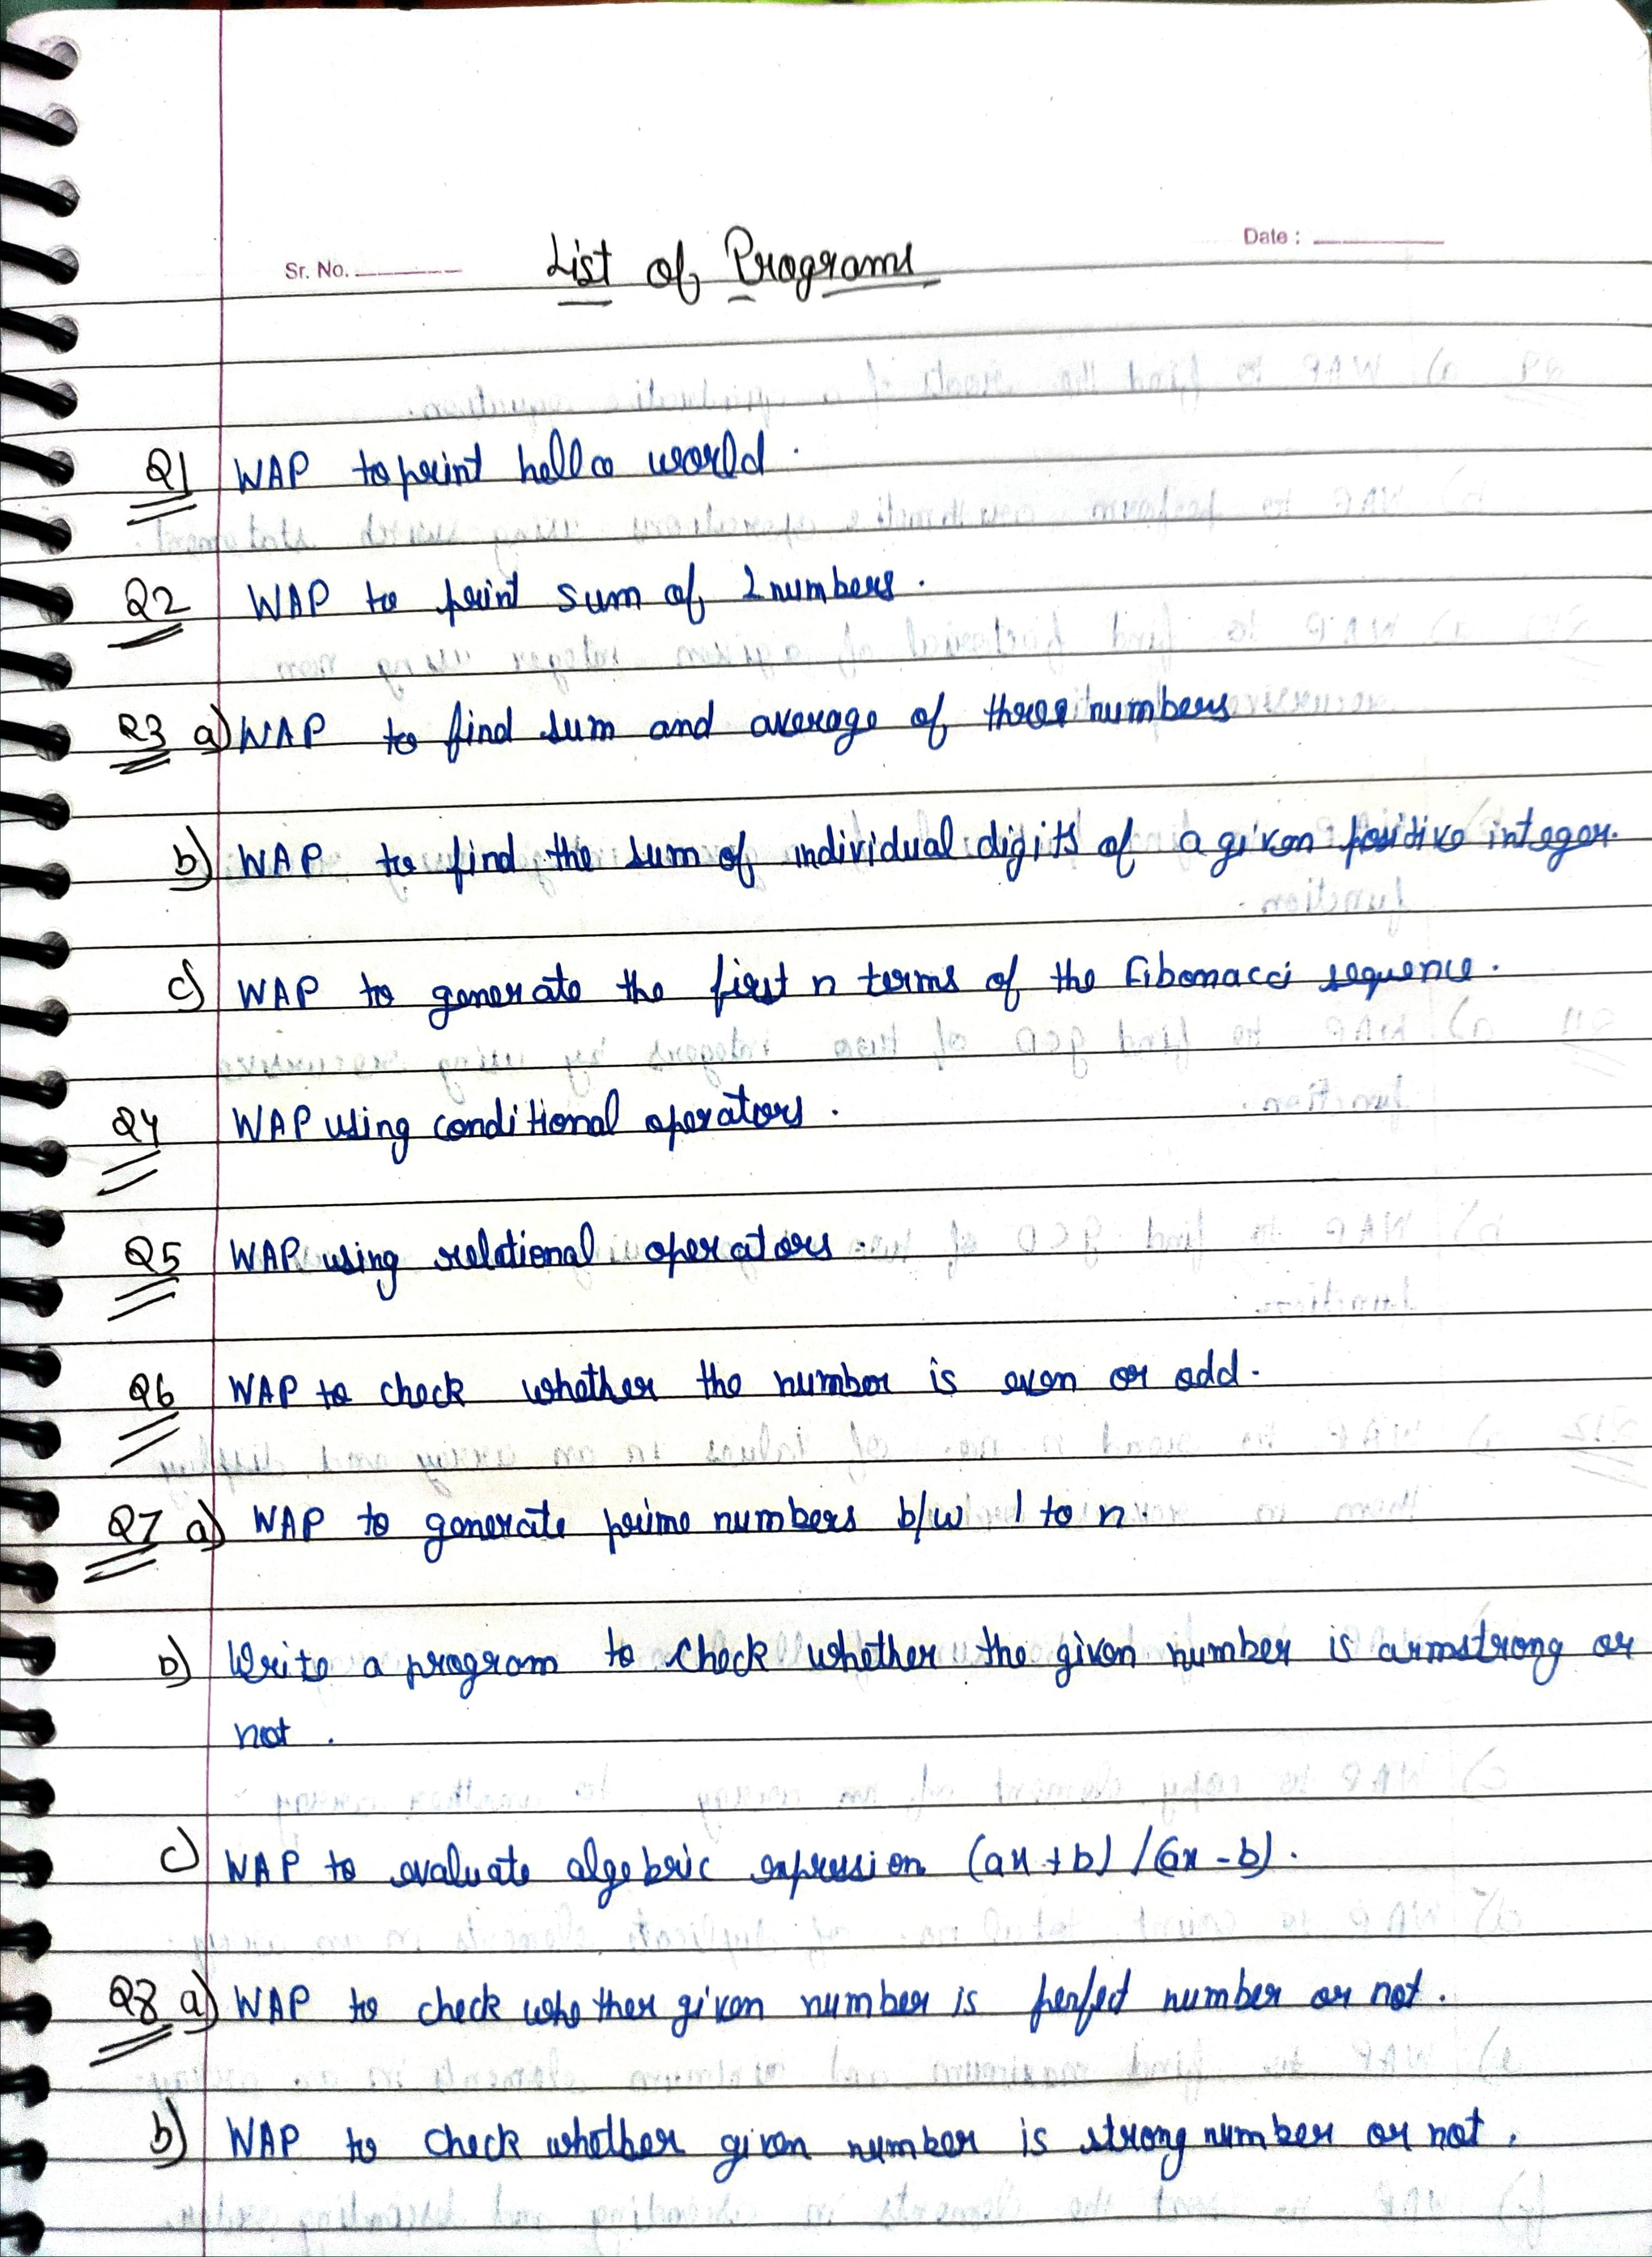 Sr. No.
List of Programs
Date :
Q1 WAP to print hello world.
Q2 WAP to print sum of 2 numbers.
Q3 a) WAP to find sum and average of three numbers
b) WAP to find the sum of individual digits of a given positive integer.
c) WAP to generate the first n terms of the Fibonacci sequence.
Q4 WAP using conditional operators.
Q5 WAP using relational operators.
Q6 WAP to check whether the number is even or odd.
Q7 a) WAP to generate prime numbers b/w 1 to n.
b) Write a program to check whether the given number is armstrong or
not.
c) WAP to evaluate algebric expression (ax + b) / (ax - b).
Q8 a) WAP to check whether given number is perfect number or not.
b) WAP to check whether given number is strong number or not.